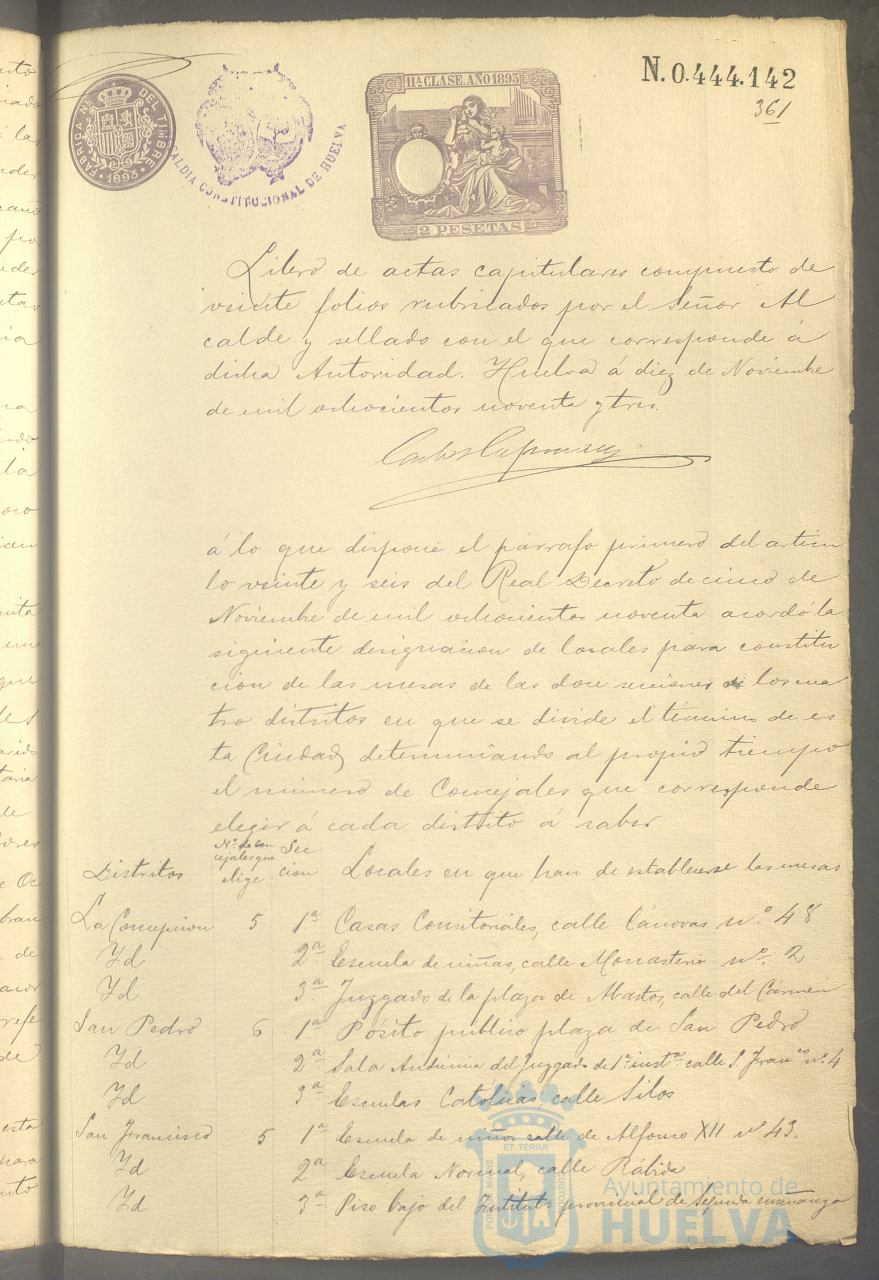 FABRICA Nal. DEL TIMBRE
1893
ALCALDIA CONSTITUCIONAL DE HUELVA
11ª CLASE. AÑO 1893
2 PESETAS
N. 0.444.142
361
Libro de actas capitulares compuesto de
veinte folios rubricados por el Señor Al
calde y sellado con el que corresponde á
dicha Autoridad. Huelva á diez de Noviembre
de mil ochocientos noventa y tres.
á lo que dispone el párrafo primero del artícu
lo veinte y seis del Real Decreto de cinco de
Noviembre de mil ochocientos noventa acordó la
siguiente designacion de locales para constitu
cion de las mesas de las doce secciones de los cua
tro distritos en que se divide el término de es
ta Ciudad, determinando al propio tiempo
el número de Concejales que corresponde
elegir á cada distrito á saber
Distritos Nº. de con cejales que elige Sec cion Locales en que han de establecerse las mesas
La Concepcion 5 1ª Casas Consitoriales, calle Cánovas nº. 48
Yd 2ª Escuela de niñas, calle Monasterio nº. 2
Yd 3ª Juzgado de la plaza de Abastos, calle del Cármen
San Pedro 6 1ª Pósito publico plaza de San Pedro
Yd 2ª Sala Audiencia del Juzgado de 1ª instª calle S. Franco nº. 4
Yd 3ª Escuelas Catolicas, calle Silos
San Francisco 5 1ª Escuela de niños calle de Alfonso XII nº 43.
Yd 2ª Escuela Normal, calle Rábida
Yd 3ª Piso bajo del Instituto provincial de segunda enseñanza
Ayuntamiento de
HUELVA